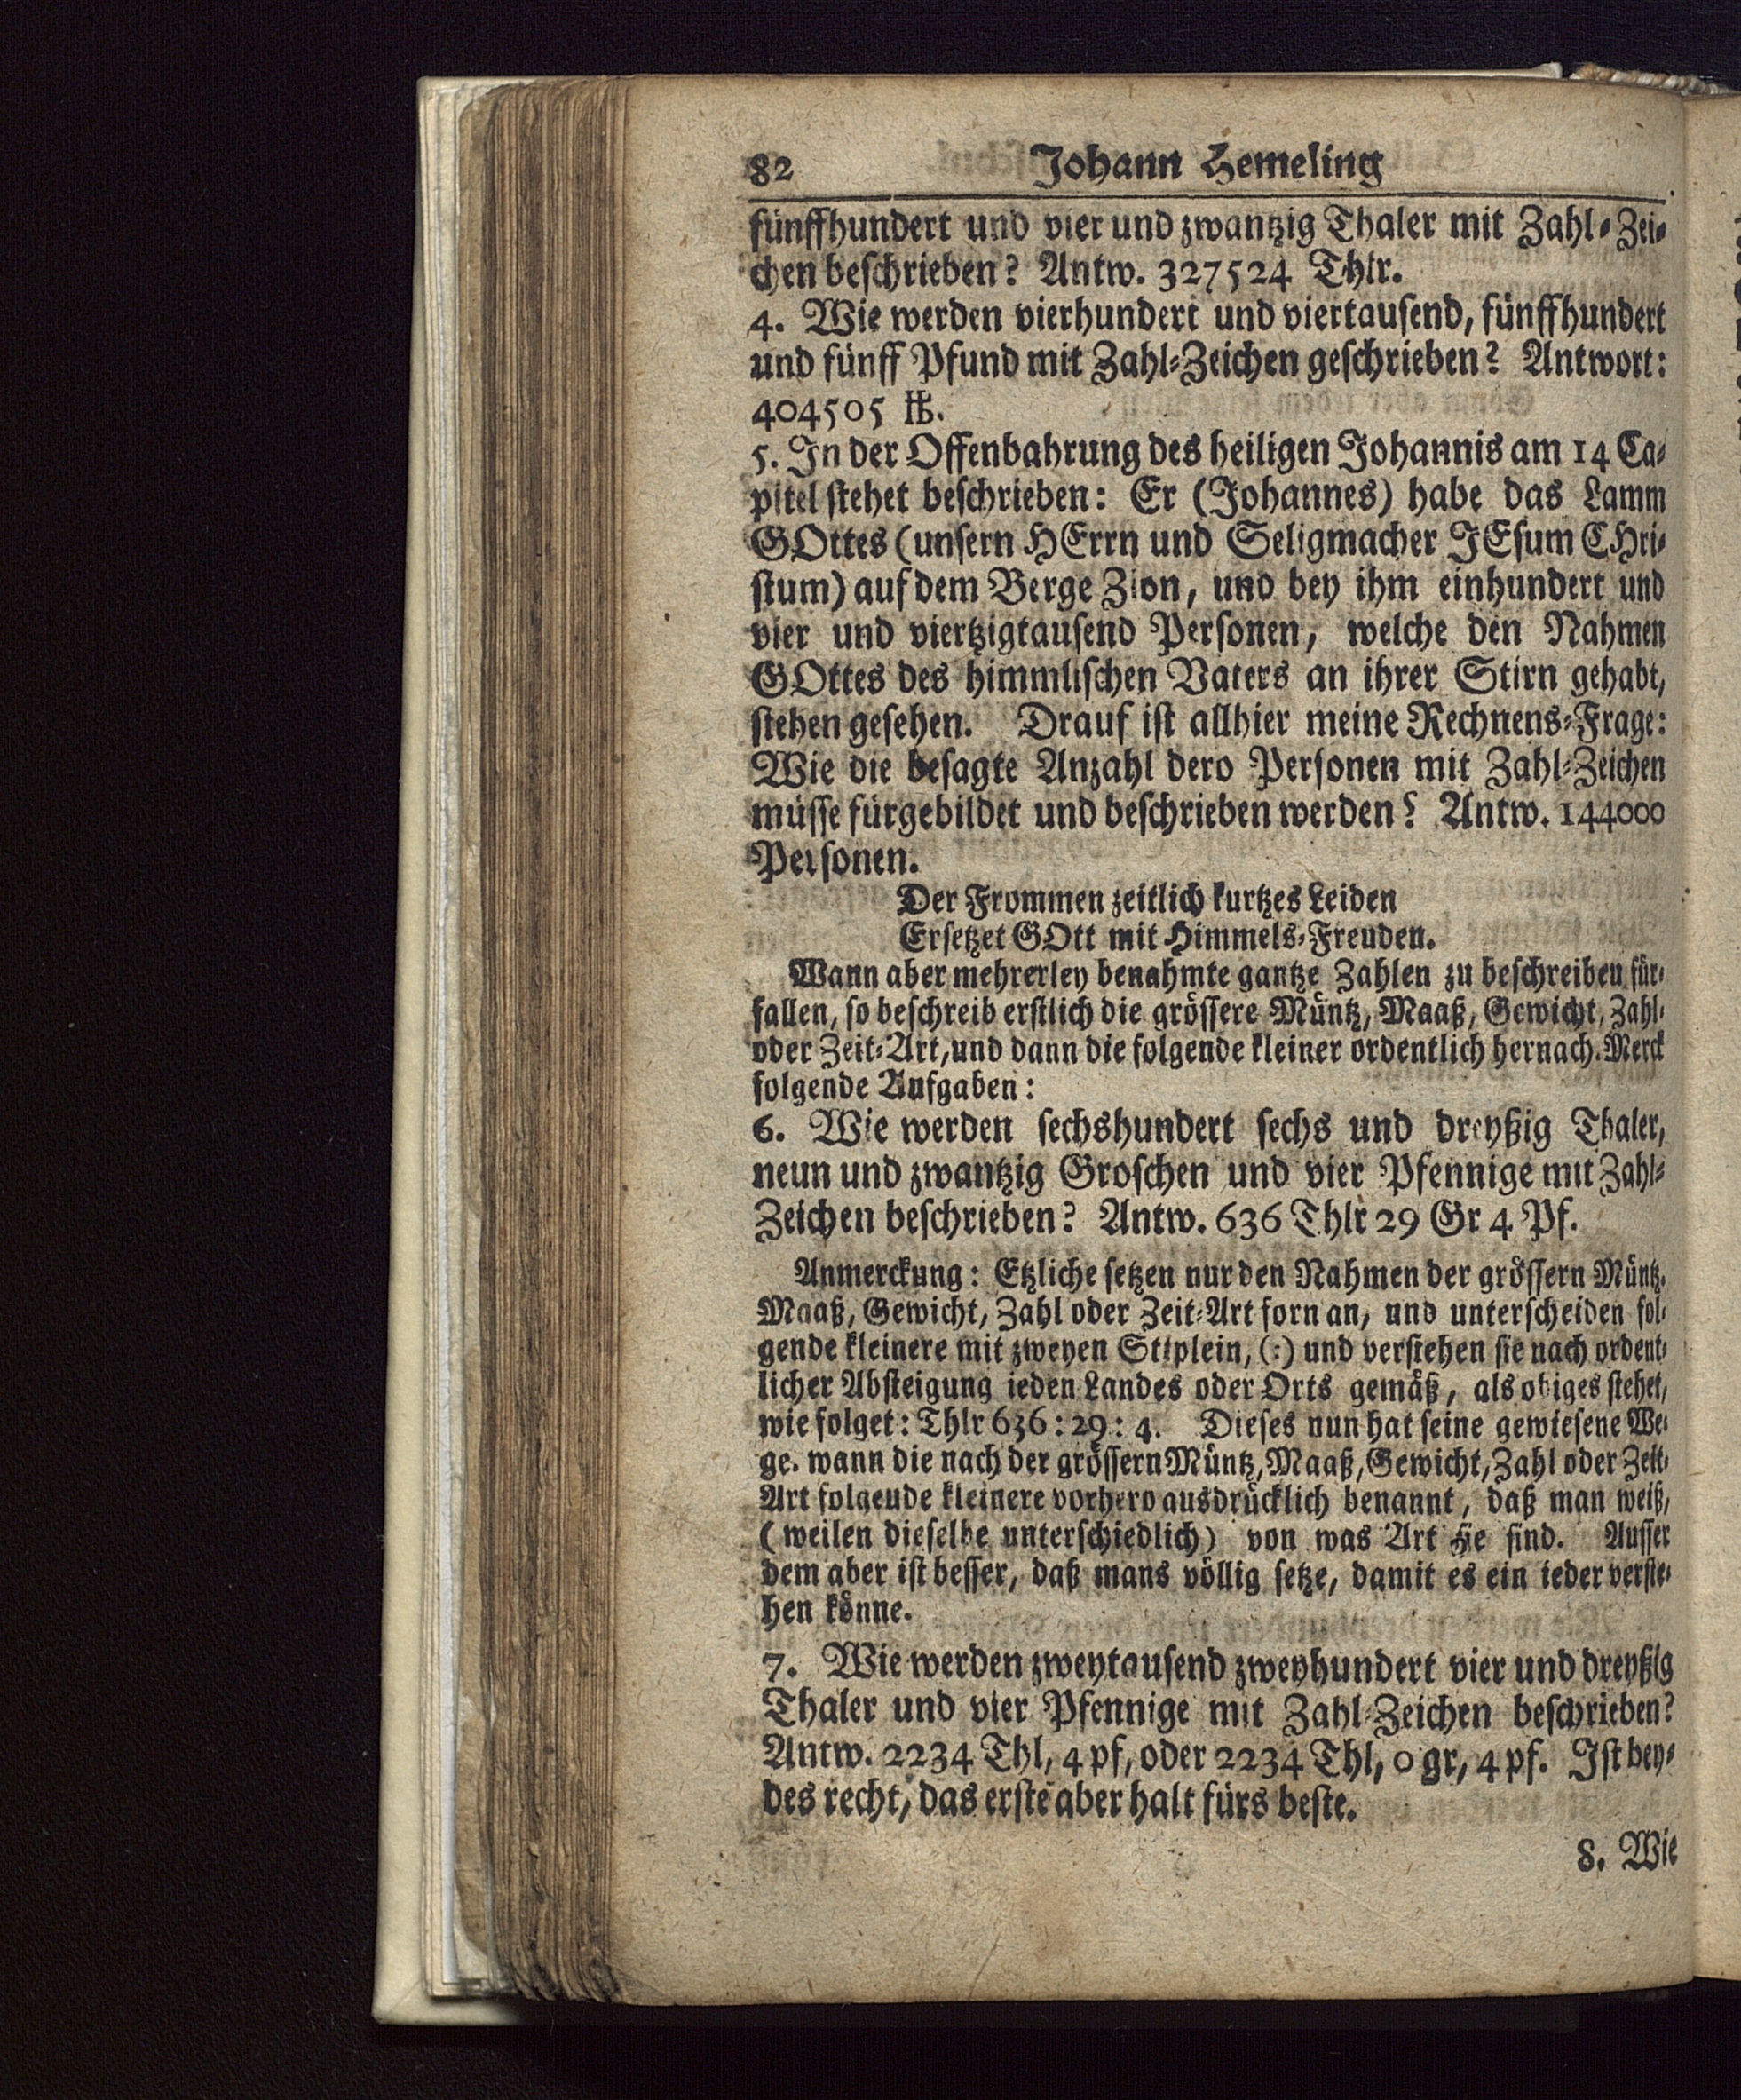 82 Johann Hemeling
fünffhundert und vier und zwantzig Thaler mit Zahl-Zei-
chen beschrieben? Antw. 327524 Thlr.
4. Wie werden vierhundert und viertausend, fünffhundert
und fünff Pfund mit Zahl-Zeichen geschrieben? Antwort:
404505 ℔.
5. In der Offenbahrung des heiligen Johannis am 14 Ca-
pitel stehet beschrieben: Er (Johannes) habe das Lamm
GOttes (unsern HErrn und Seligmacher JEsum CHri-
stum) auf dem Berge Zion, und bey ihm einhundert und
vier und viertzigtausend Personen, welche den Nahmen
GOttes des himmlischen Vaters an ihrer Stirn gehabt,
stehen gesehen. Drauf ist allhier meine Rechnens-Frage:
Wie die besagte Anzahl dero Personen mit Zahl-Zeichen
müsse fürgebildet und beschrieben werden? Antw. 144000
Personen.
Der Frommen zeitlich kurtzes Leiden
Ersetzet GOtt mit Himmels-Freuden.
Wann aber mehrerley benahmte gantze Zahlen zu beschreiben für-
fallen, so beschreib erstlich die grössere Müntz, Maaß, Gewicht, Zahl-
oder Zeit-Art, und dann die folgende kleiner ordentlich hernach. Merck
folgende Aufgaben:
6. Wie werden sechshundert sechs und dreyßig Thaler,
neun und zwantzig Groschen und vier Pfennige mit Zahl-
Zeichen beschrieben? Antw. 636 Thlr 29 Gr 4 Pf.
Anmerckung: Etzliche setzen nur den Nahmen der grössern Müntz,
Maaß, Gewicht, Zahl oder Zeit-Art forn an, und unterscheiden fol-
gende kleinere mit zweyen Stiplein, (:) und verstehen sie nach ordent-
licher Absteigung ieden Landes oder Orts gemäß, als obiges stehet,
wie folget: Thlr 636 : 29 : 4. Dieses nun hat seine gewiesene We-
ge. wann die nach der grössern Müntz, Maaß, Gewicht, Zahl oder Zeit-
Art folgeude kleinere vorhero ausdrücklich benannt, daß man weiß,
(weilen dieselbe unterschiedlich) von was Art sie sind. Ausser
dem aber ist besser, daß mans völlig setze, damit es ein ieder verste-
hen könne.
7. Wie werden zweytausend zweyhundert vier und dreyßig
Thaler und vier Pfennige mit Zahl-Zeichen beschrieben?
Antw. 2234 Thl, 4 pf, oder 2234 Thl, 0 gr, 4 pf. Ist bey-
des recht, das erste aber halt fürs beste.
8. Wie